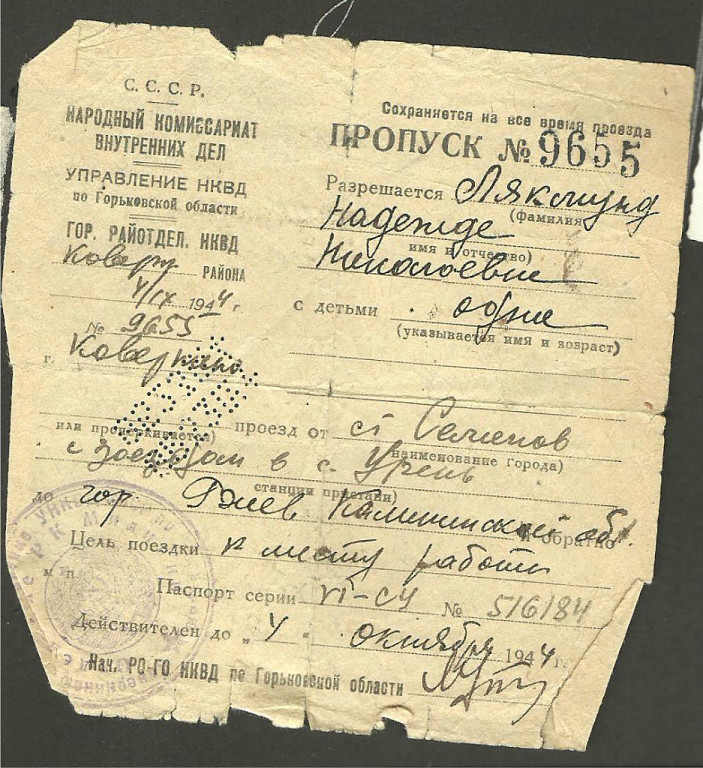 С. С. С. Р.
НАРОДНЫЙ КОМИССАРИАТ
ВНУТРЕННИХ ДЕЛ
УПРАВЛЕНИЕ НКВД
по Горьковской области
ГОР. РАЙОТДЕЛ. НКВД
Коверн РАЙОНА
4/IX 1944 г
№ 9655
г. Ковернино
Сохраняется на все время проезда
ПРОПУСК № 9655
Разрешается Лякмунд
(фамилия
Надежде
имя и отчество)
Николаевне
с детьми одне
(указывается имя и возраст)
или прочеркивается) проезд от ст Семенов
наименование города)
с заездом в с. Урень
станции пристани)
до гор. Ржев Калининской обл.
и обратно
Цель поездки к месту работы
м. п.
Паспорт серии VI-СУ № 516184
Действителен до „4" октября 1944 г.
Нач. РО-ГО НКВД по Горьковской области